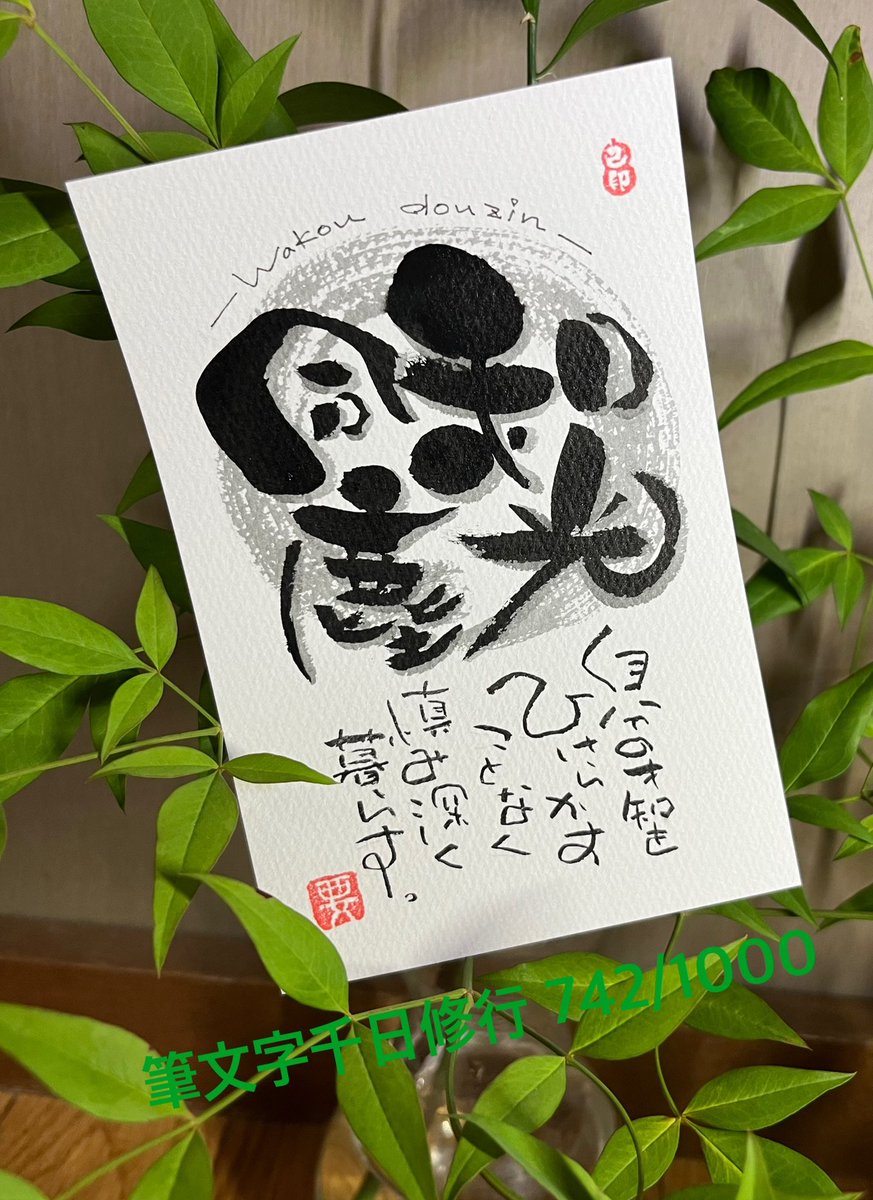 —Wakou douzin—
和光
同塵
自分の才知を
ひけらかす
ことなく
慎み深く
暮らす。
要
筆文字千日修行 742/1000